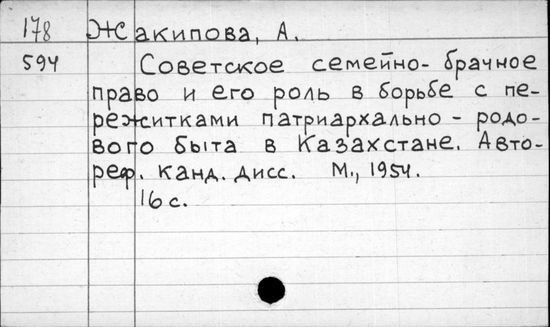 178 Жакипова, А.
594 Советское семейно-брачное
право и его роль в борьбе с пе-
режитками патриархально-родо-
вого быта в Казахстане. Авто-
реф. канд. дисс. М., 1954.
16 с.